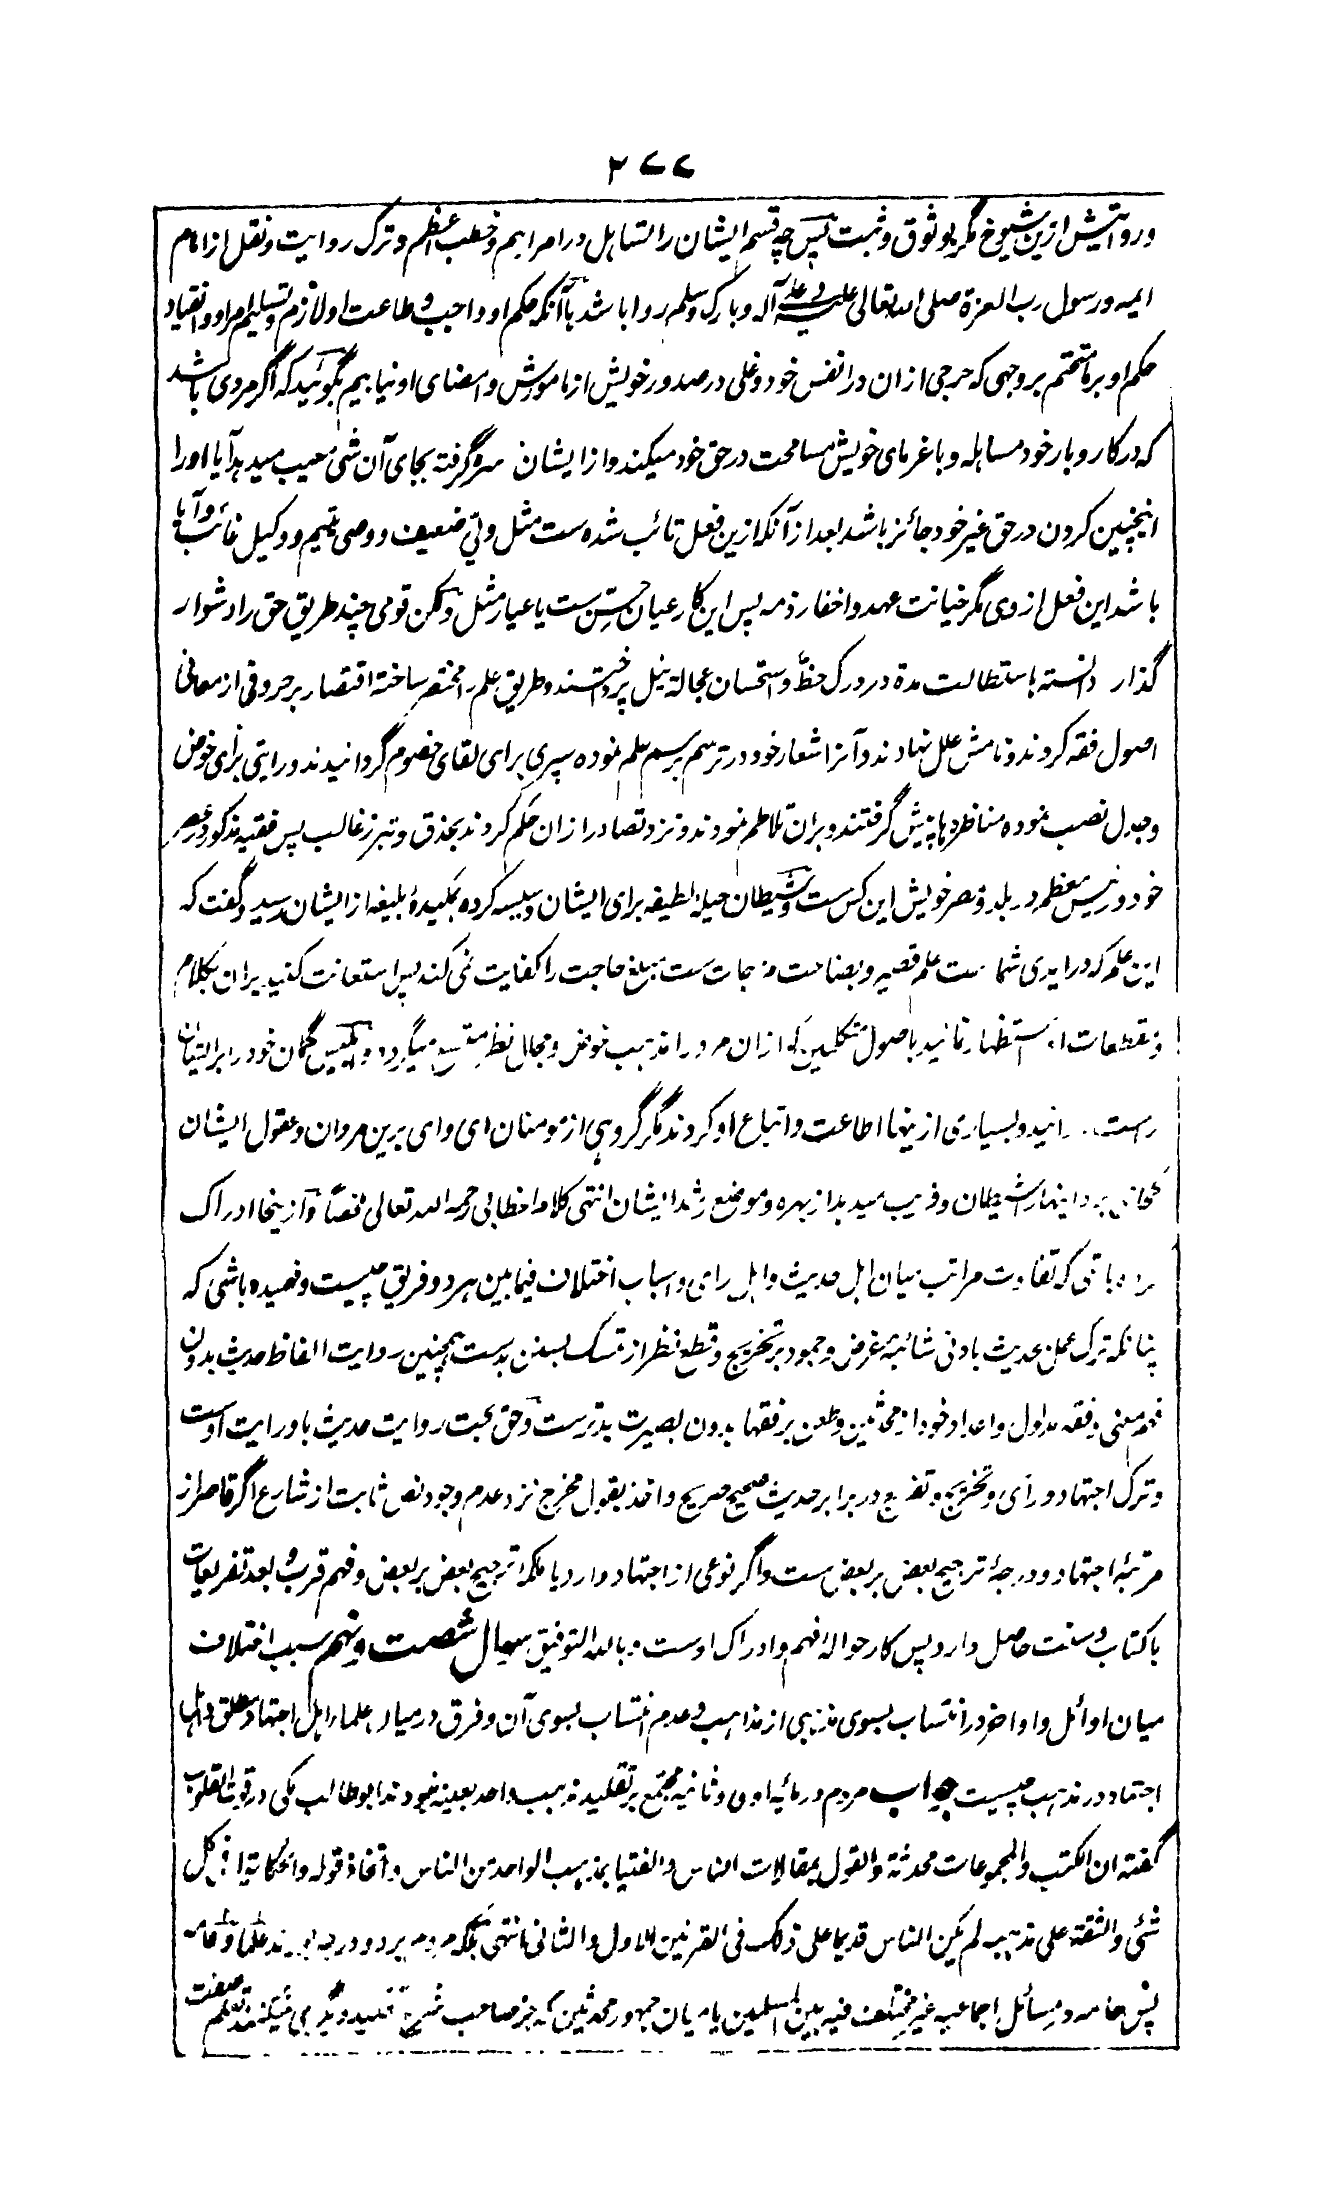 ۲۷۷
و روایتش ازین شیوخ مگر بوثوق و ثبت پس چه قسم ایشان را تساهل در امر اہم و خطب اعظم و ترک روایت و نقل از امام
ایمه و رسول رب العزة صلی الله تعالی علیه وعلی آله وبارک وسلم روا باشد با آنکه حکم او واجب و طاعت او لازم و تسلیم امر او و انقیاد
حکم او بر ما متحتم بر وجہی که حرجی از ان در نفس خود و غلی در صدور خویش از مامورش و امضای او نیابیم بگوئید که اگر مردی باشد
که در کار و بار خود مساهله و با غرمای خویش مسامحت در حق خود میکند و از ایشان سره گرفته بجای آن شئ معیب میدہد آیا او را
اینچنین کردن در حق غیر خود جائز باشد بعد از آنکه ازین فعل نائب شده ست مثل ولی ضعیف و وصی یتیم و وکیل غائب و آیا
باشد این فعل از وی مگر خیانت عہد و اخفار ذمه پس این کار عیان حسن ست یا عیار مثل و لکن قومی چند طریق حق را دشوار
گذار دانسته باستطالت مدة در درک حظ و استحسان عجالة نیل پرداختند و طریق علم را مختصر ساخته اقتصار بر حروفی از معانی
اصول فقه کردند و نامش علل نہادند و آنرا شعار خود در ترسم برسم علم نموده سپری برای لقای خصوم گردانیدند و رایتی برای خوض
و جدل نصب نموده مناظره ہا پیش گرفتند و بران تلاطم نمودند و نزد تصادر از ان حکم کردند بحذق و تبرز غالب پس فقیه مذکور در عصر
خود و رئیس معظم در بلد و مصر خویش این کس ست و شیطان حیلهٔ لطیفه برای ایشان دسیسه کرده بمکیدهٔ بلیغه از ایشان رسید و گفت که
این علم که در ایدی شما ست علم قصیر و بضاعت مزجات ست بمبلغ حاجت را کفایت نمی کند پس استعانت کنید بران بکلام
و مقطعات استظهار نمائید باصول متکلمین که از ان مرد را مذہب خوض و مجال نظر متسع میگردد و ابلیس گمان خود را بر ایشان
راست گردانید و بسیاری ازینها اطاعت و اتباع او کردند مگر گروہی از مومنان ای وای برین مردان و عقول ایشان
کجا می برد اینها را شیطان و فریب میدہد از بہره و موضع رشد ایشان انتہی کلام الخطابی رحمه الله تعالی ملخصاً و ازینجا ادراک
کرده باشی که تفاوت مراتب میان اہل حدیث و اہل رای و اسباب اختلاف فیما بین ہر دو فریق چیست و فہمیده باشی که
چنانکه ترک عمل بحدیث بادنی شائبهٔ غرض و جمود بر تخریج و قطع نظر از تمسک بسنن بد ست ہمچنین روایت الفاظ حدیث بدون
فہم معنی و فقه مدلول و اعداد خود از محدثین و طعن بر فقہا بدون بصیرت بدتر ست و حق بحت روایت حدیث با درایت اوست
و ترک اجتهاد و رای و تخریج و تفریع در برابر حدیث صحیح صریح و اخذ بقول مخرج نزد عدم وجود نص ثابت از شارع اگر قاصر از
مرتبهٔ اجتهاد و درجهٔ ترجیح بعض بر بعض ست و اگر نوعی از اجتهاد دارد یا ملکهٔ ترجیح بعض بر بعض و فہم قرب و بعد تفریعات
با کتاب و سنت حاصل دارد پس کار حوالهٔ فہم و ادراک اوست و بالله التوفیق سوال شصت و نهم سبب اختلاف
میان اوائل و اواخر در انتساب بسوی مذہبی از مذاہب و عدم انتساب بسوی آن و فرق در میان علماء اہل اجتہاد مطلق و اہل
اجتهاد در مذہب چیست جواب مردم در مائه اولی و ثانیه مجتمع بر تقلید مذہب واحد بعینه نبودند ابو طالب مکی در قوت القلوب
گفته ان الکتب والمجموعات محدثة والقول بمقالات الناس والفتیا بمذہب الواحد من الناس واتخاذ قوله والحکایة له فی کل
شئ والثقة علی مذہبه لم یکن الناس قدیما علی ذلک فی القرنین الاول والثانی انتہی بلکه مردم بر دو درجه بودند علما و عامه
پس عامه در مسائل اجماعیه غیر مختلف فیه بین المسلمین یا میان جمہور محدثین که جز صاحب شرع تقلید دیگری نمیکنند تعلم صفت